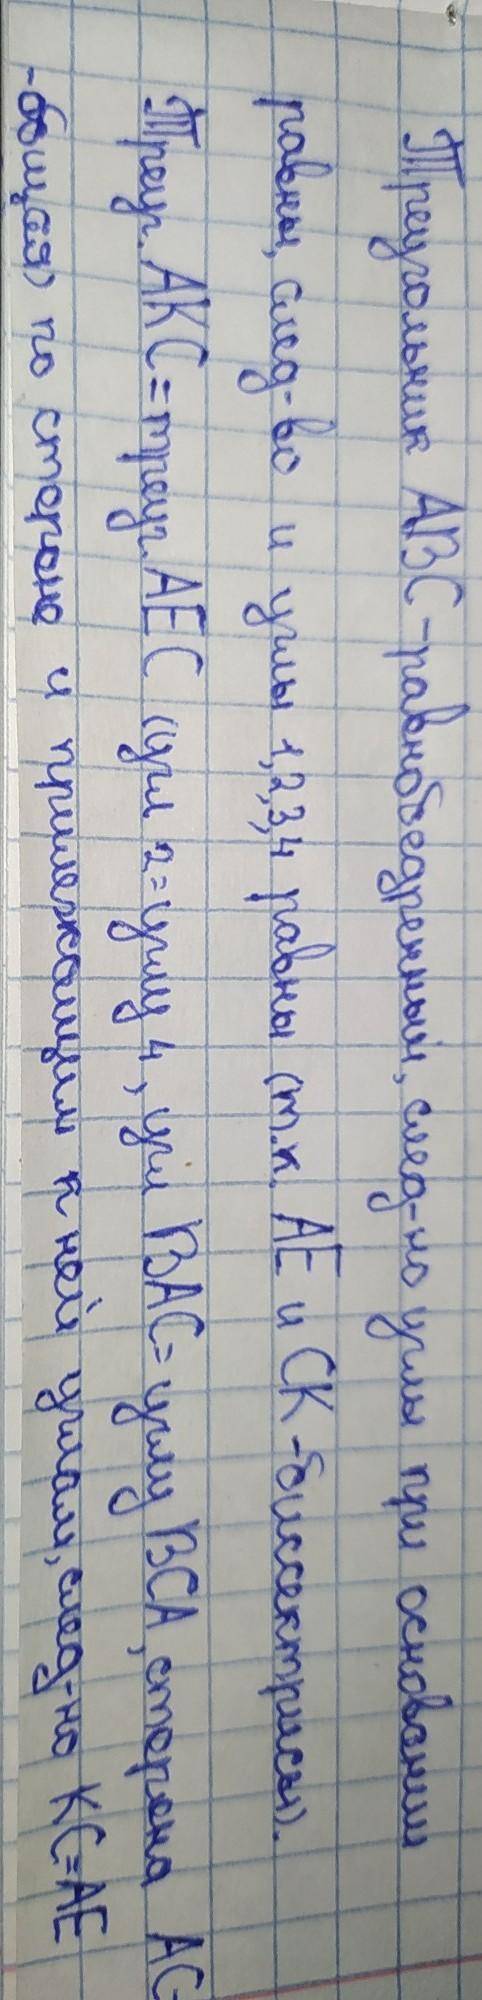 Треугольник ABC-равнобедренный, след-но углы при основании
равны, след-во и углы 1,2,3,4 равны (т.к. AE и CK-биссектрисы).
Треуг. AKC=треуг. AEC (угл 2=углу 4, угл BAC= углу BCA, сторона AC-
-общая) по стороне и прилежащим к ней углам, след-но KC=AE